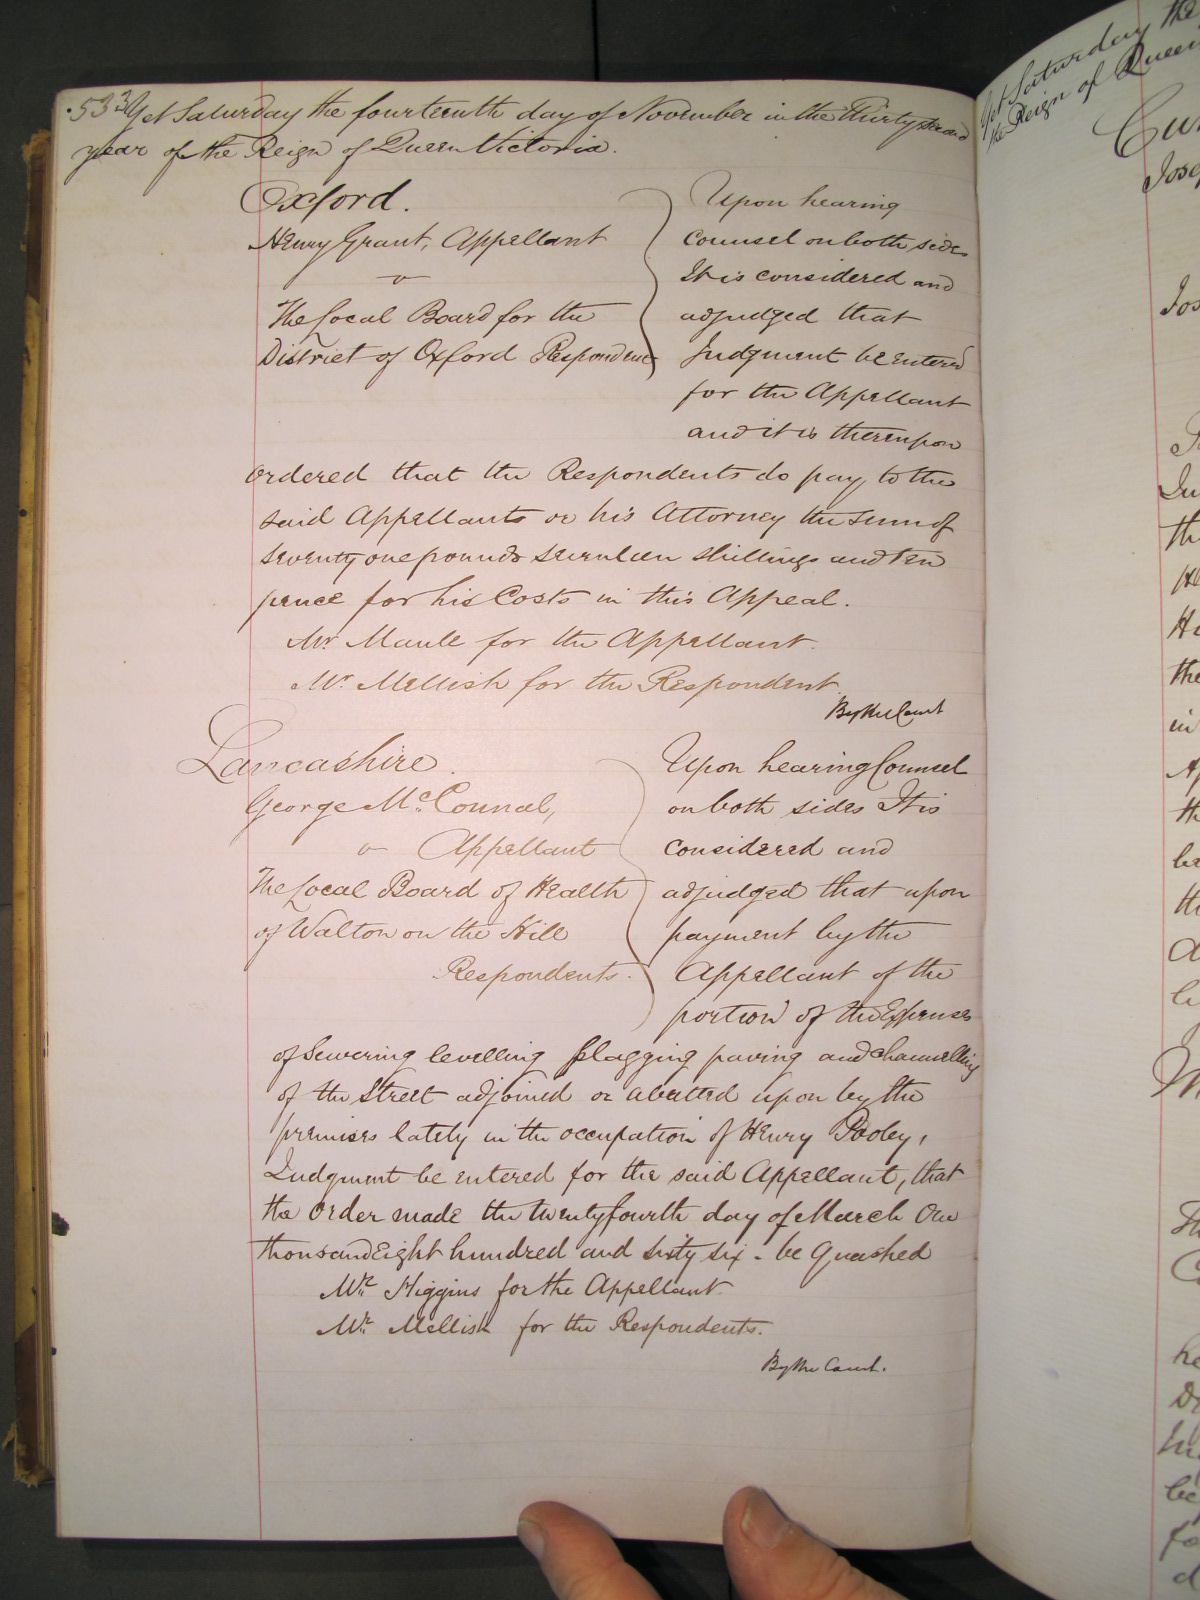 533 Yet Saturday the fourteenth day of November in the Thirtysecond
year of the Reign of Queen Victoria.
Oxford.
Henry Grant, Appellant
v
The Local Board for the
District of Oxford Respondent
Upon hearing
counsel on both sides
It is considered and
adjudged that
Judgment be entered
for the Appellant
and it is thereupon
ordered that the Respondents do pay to the
said Appellants or his Attorney the sum of
seventy one pounds seventeen shillings and ten
pence for his Costs in this Appeal.
Mr Maule for the Appellant.
Mr. Mellish for the Respondent.
By the Court
Lancashire.
George Mc.Connal,
v Appellant
The Local Board of Health
of Walton on the Hill
Respondents.
Upon hearing Counsel
on both sides It is
considered and
adjudged that upon
payment by the
Appellant of the
portion of the Expenses
of Sewering levelling flagging paving and channelling
of the Street adjoined or abutted upon by the
premises lately in the occupation of Henry Pooley,
Judgment be entered for the said Appellant, that
the Order made the twentyfourth day of March One
thousand Eight hundred and sixty six - be Quashed
Mr. Higgins for the Appellant.
Mr. Mellish for the Respondents.
By the Court.
Yet Saturday the
the Reign of Queen